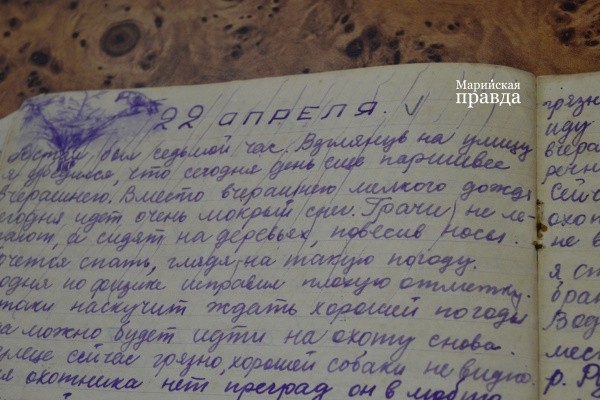 Марийская
правда
22 АПРЕЛЯ.
Встал, был седьмой час. Взглянув на улицу
я убедился, что сегодня день еще паршивее
вчерашнего. Вместо вчерашнего мелкого дождя
сегодня идет очень мокрый снег. Грачи не ле-
тают, а сидят на деревьях, повесив носы.
хочется спать, глядя на такую погоду.
по физике исправил плохую отметку.
таки наскучит ждать хорошей погоды
можно будет идти на охоту снова.
улице сейчас грязно, хорошей собаки не видно.
охотника нет преград он в любую
грязн
иду
вчера
речн
Сейч
охот
не в
я ст
брат
Вод
мест
р. Ру